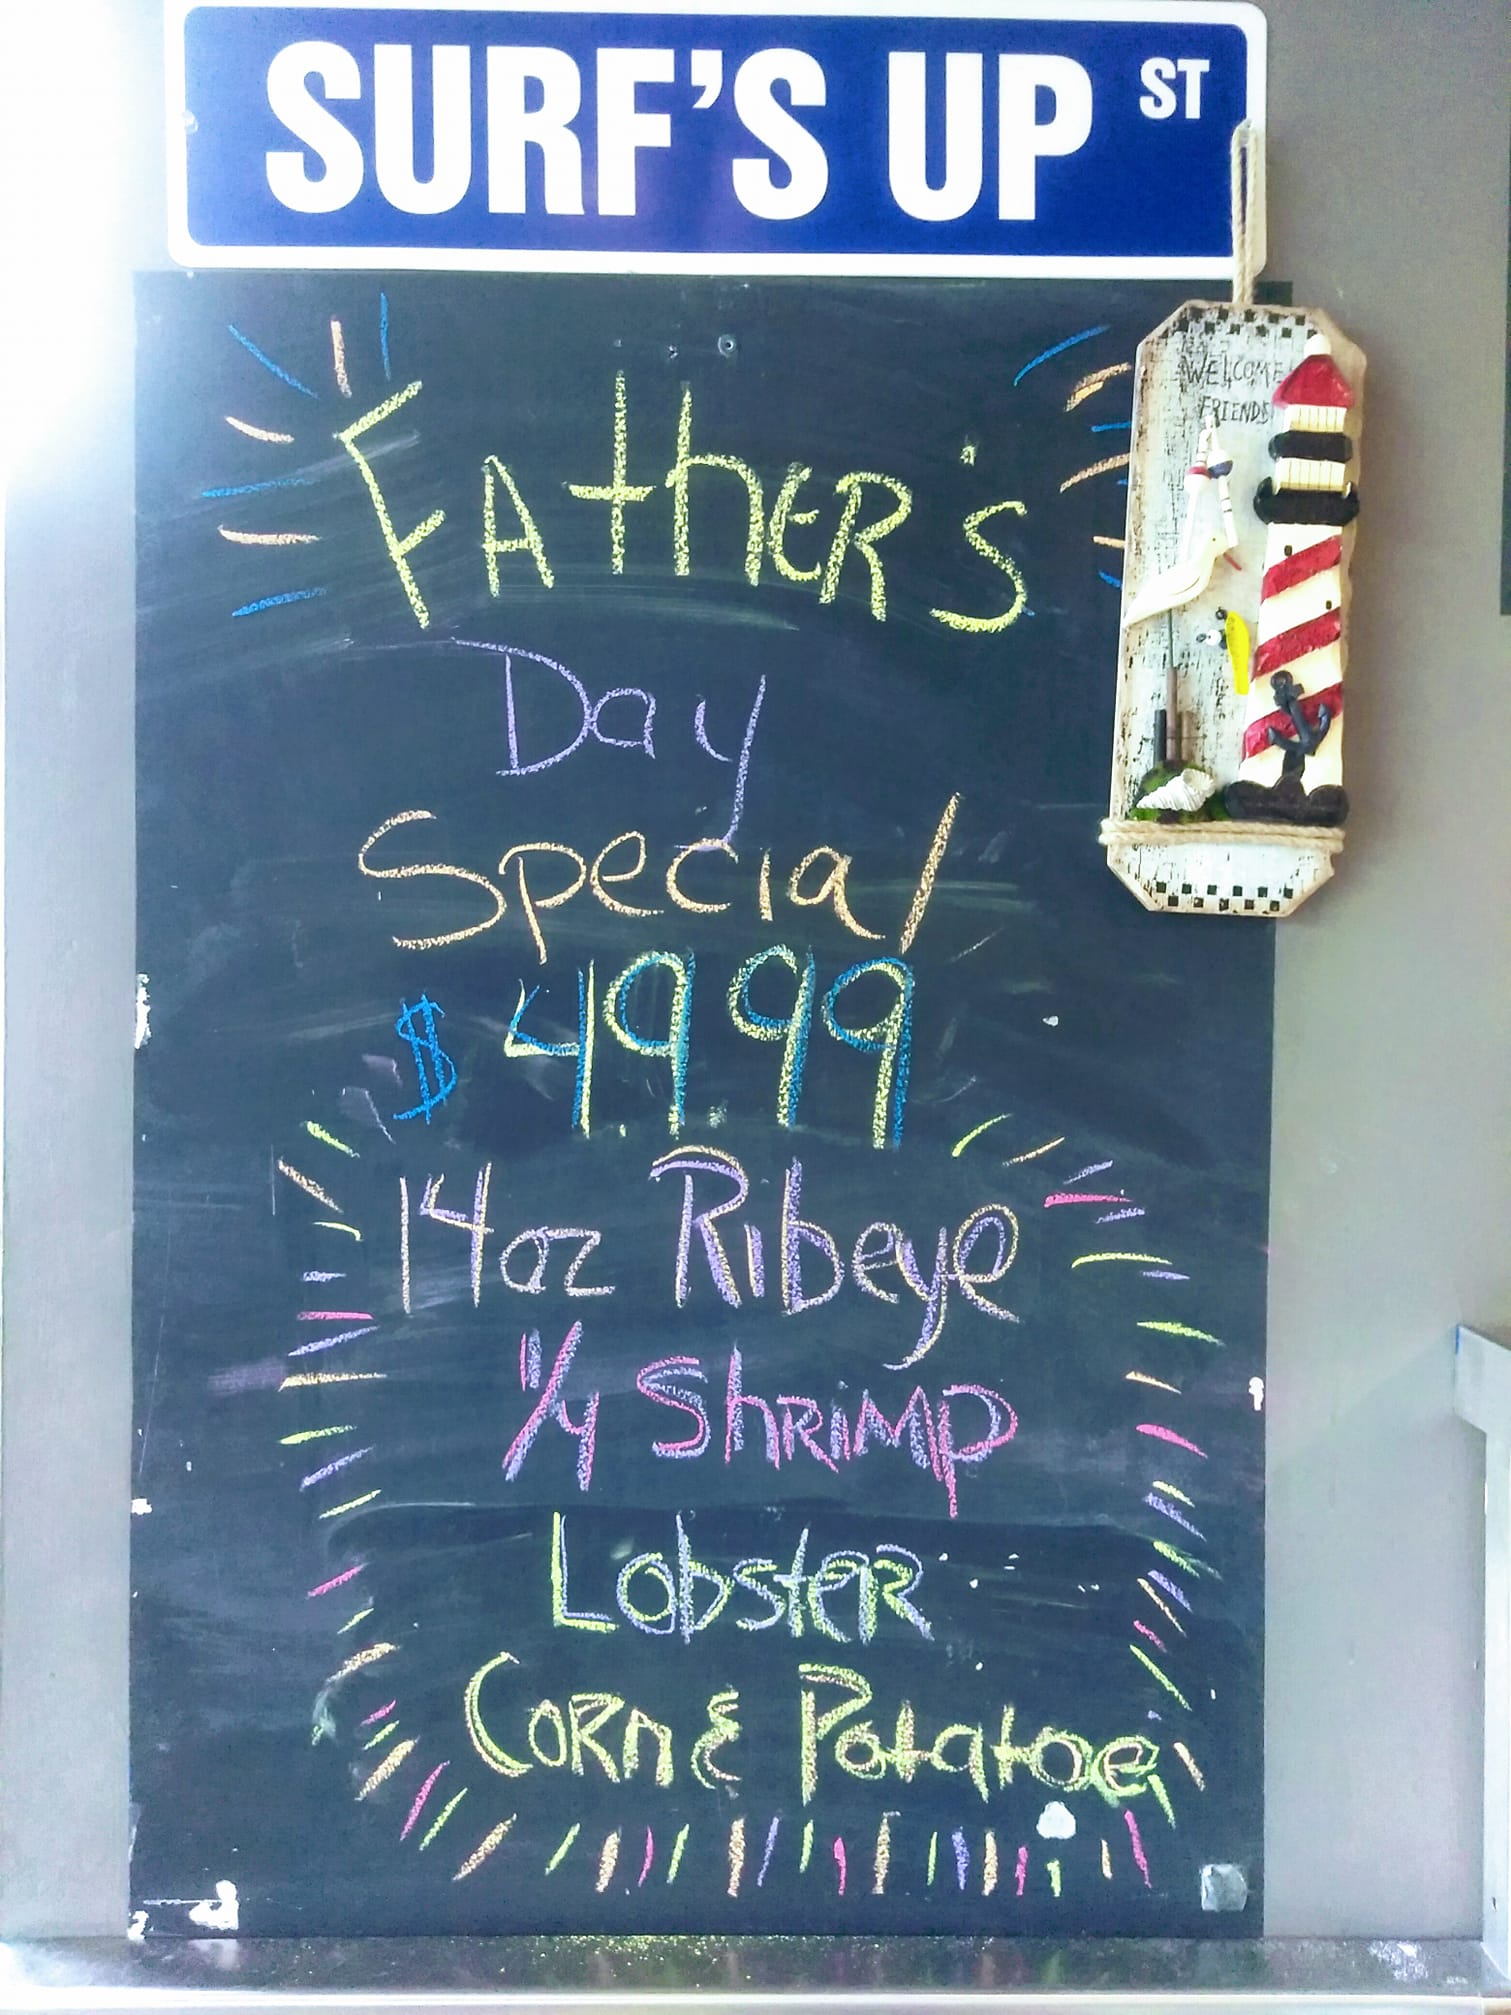 SURF'S UP ST
WELCOME
FRIENDS
FAthER's
Day
Special
$ 49.99
14oz Ribeye
1/4 ShRiMP
LobsteR
CoRn & Potatoe